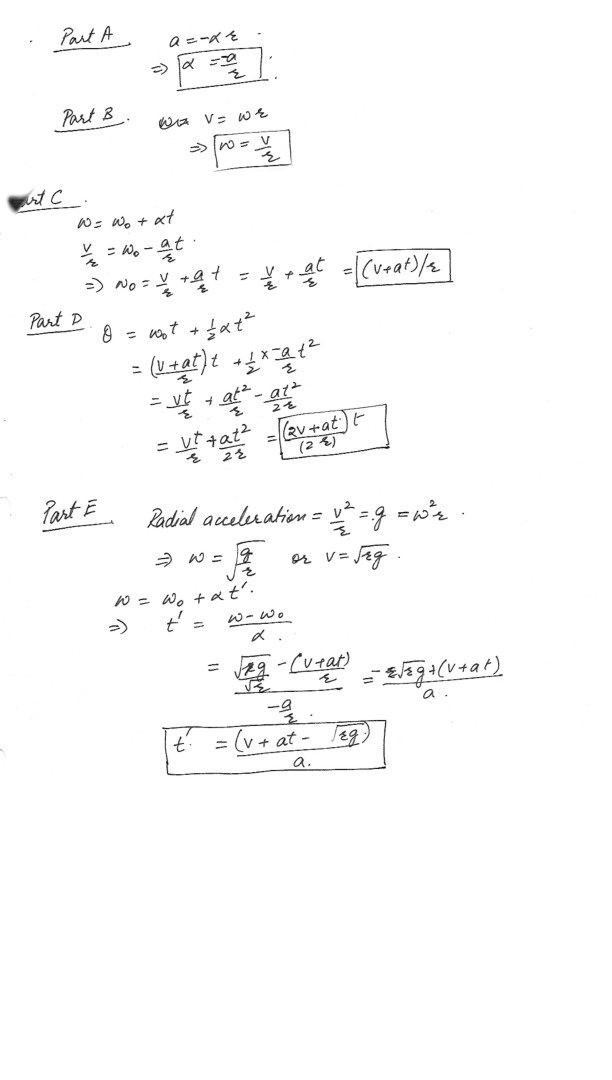 Part A a = -αr
⇒ α = -a/r
Part B. v = ωr
⇒ ω = v/r
art C.
ω = ω₀ + αt
v/r = ω₀ - a/r t.
⇒ ω₀ = v/r + a/r t = v/r + at/r = (v+at)/r
Part D. θ = ω₀t + 1/2 αt²
= (v+at)/r t + 1/2 × -a/r t²
= vt/r + at²/r - at²/2r
= vt/r + at²/2r = (2v+at)/(2r) t
Part E Radial acceleration = v²/r = g = ω²r.
⇒ ω = √(g/r) or v = √rg.
ω = ω₀ + αt'.
⇒ t' = (ω-ω₀)/α.
= (√rg/r - (v+at)/r)/(-a/r) = (-√rg + (v+at))/a.
t' = (v + at - √rg)/a.